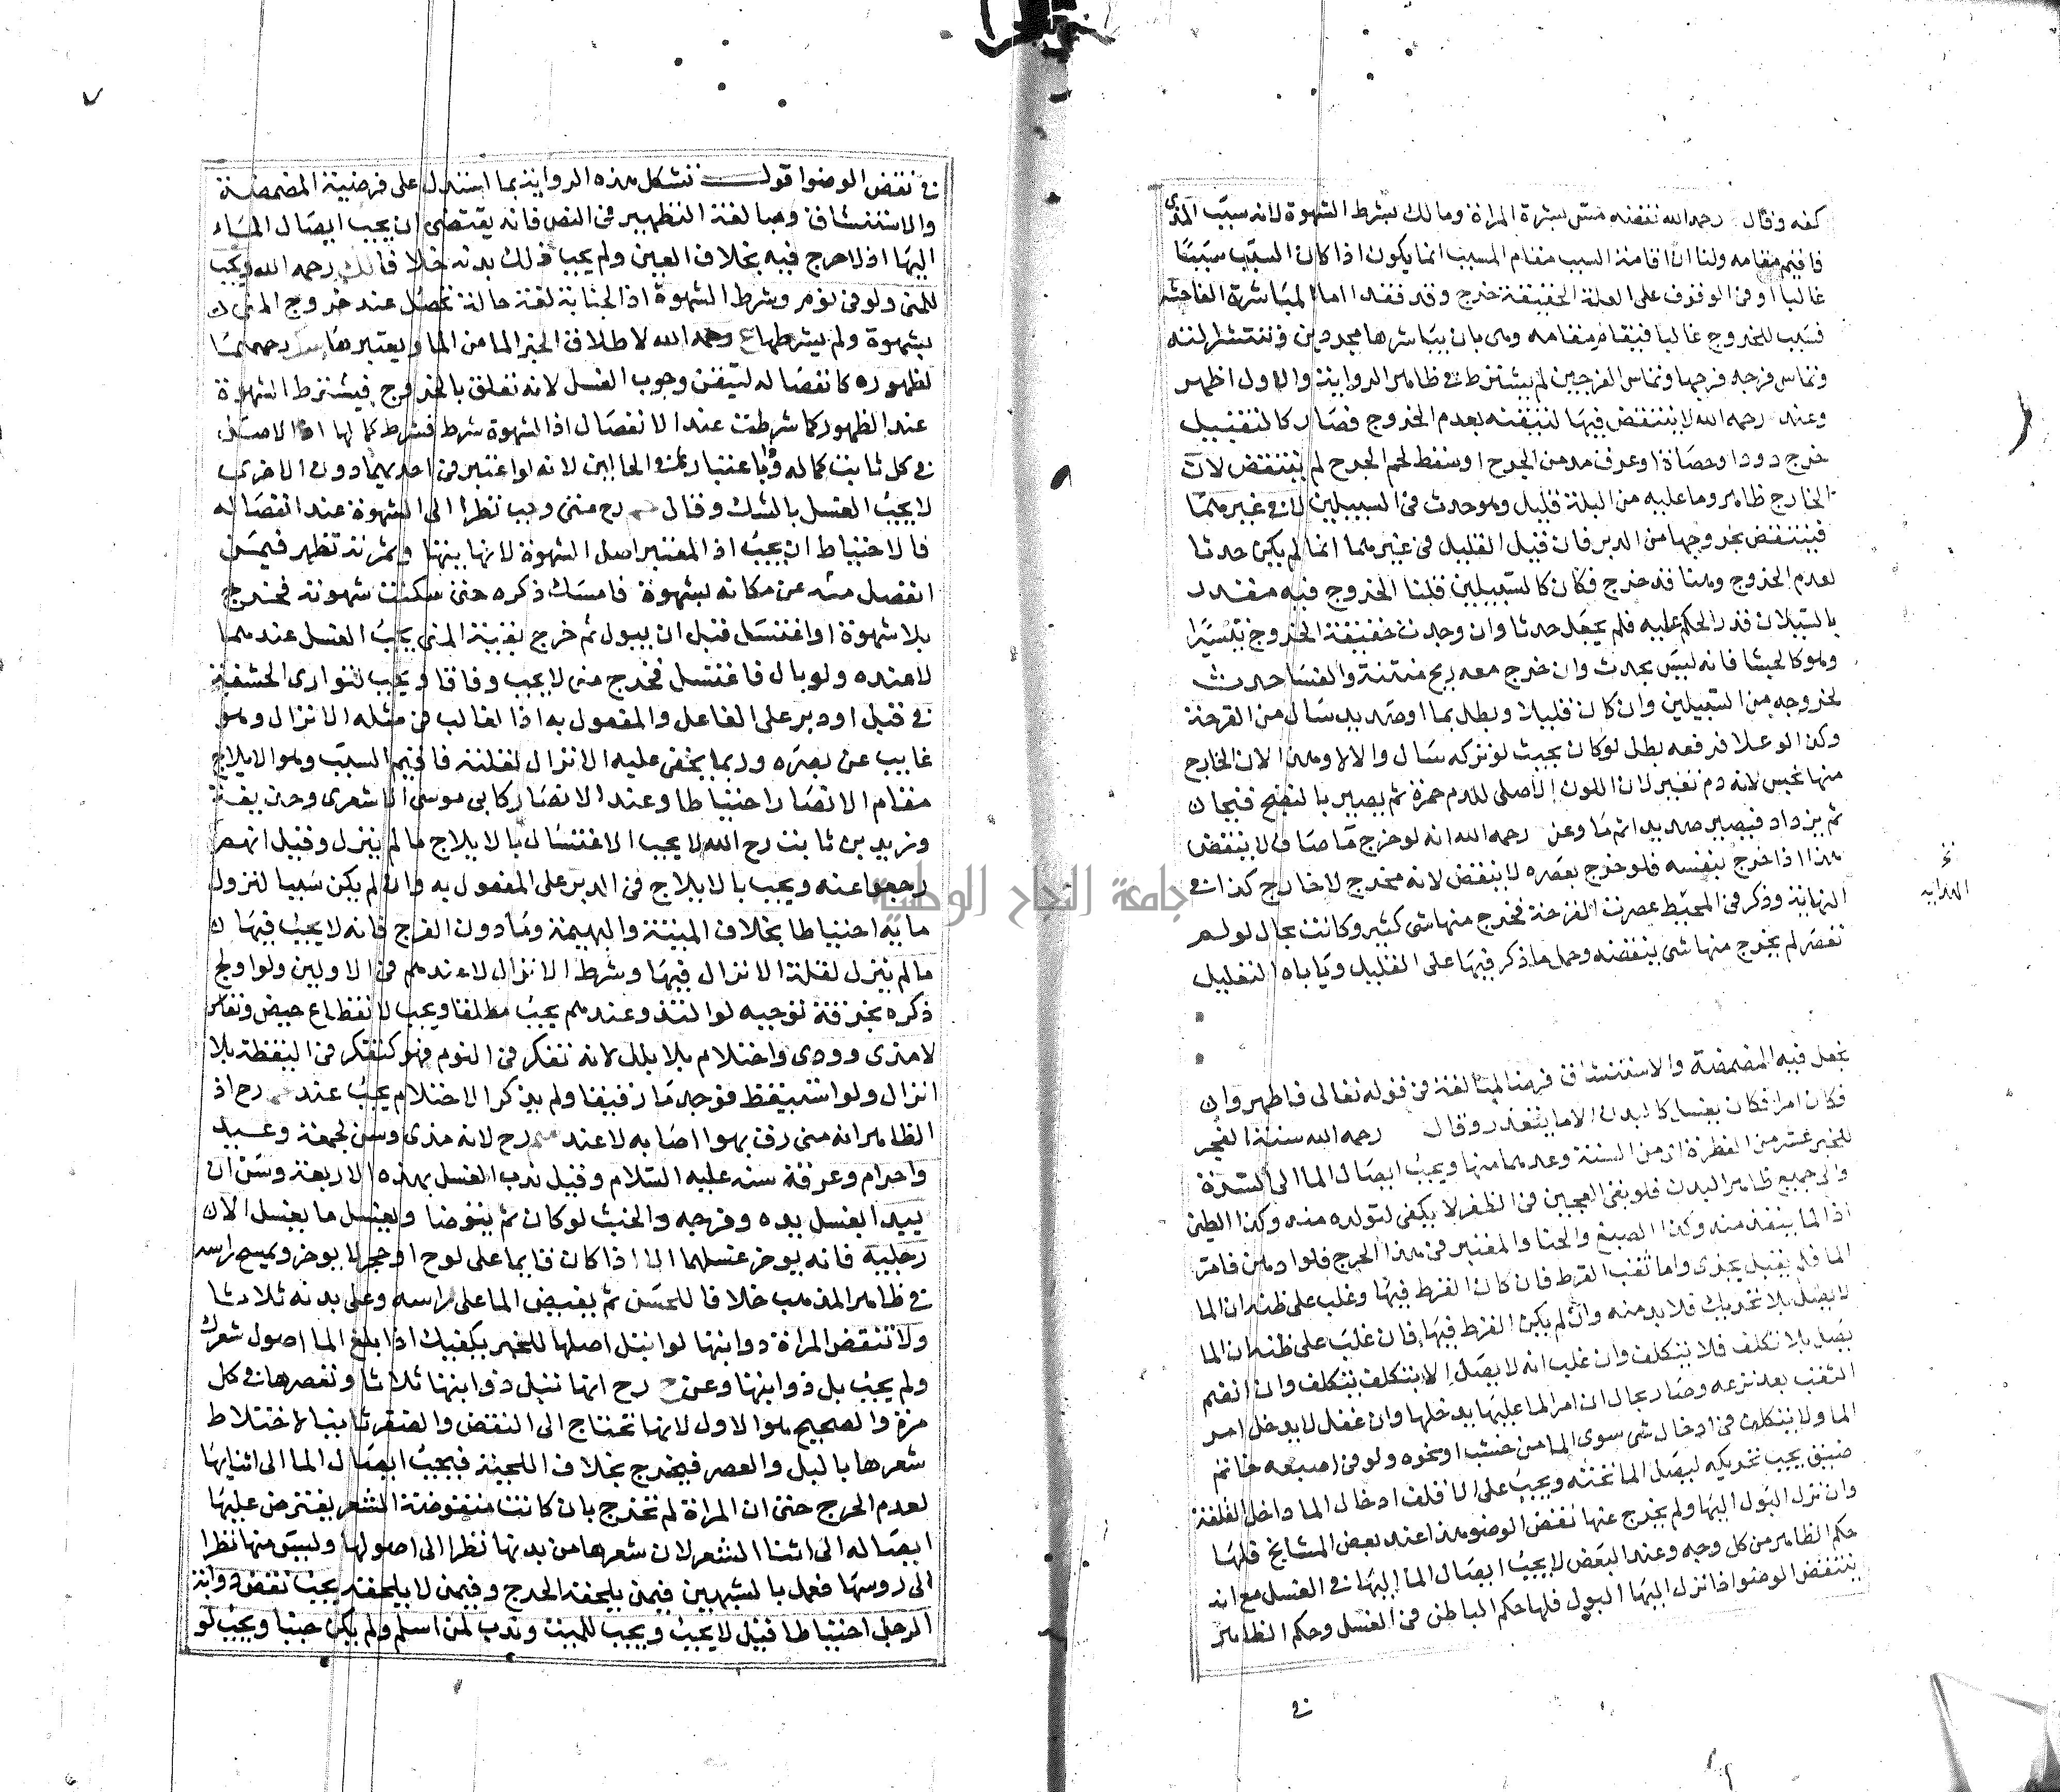 كفه وقال رحمه الله ننقضه مس بشرة المراة ومالك بشرط الشهوة لانه سبب المذى
فاقيم مقامه ولنا ان اقامة السبب مقام المسبب انما يكون اذا كان السبب سببا
غالبا او فى الوقوف على العلة الحقيقة حرج وقد فقدا اما المباشرة الفاحشة
فسبب للخروج غالبا فيقام مقامه وهى بان يباشرها مجردين وتنتشر النه
وتماس فرجه فرجها وتماس الفرجين لم يشترط فى ظاهر الرواية والاول اظهر
وعند رحمه الله لا ينتقض فيها لتيقنه بعدم الخروج فصار كالتقبيل
خرج دودا وحصاة او عرق مد من الجرح او سقط لحم الجرح لم ينتقض لان
الخارج ظاهر وما عليه من البلة قليل وهو حدث فى السبيلين لا فى غيرهما
فينتقض بخروجها من الدبر فان قيل القليل فى غيرهما انما لم يكن حدثا
لعدم الخروج وهنا قد خرج فكان كالسبيلين قلنا الخروج فيه مقدر
بالسيلان قدر الحكم عليه فلم يجعل حدثا وان وجدت حقيقة الخروج تيسيرا
وهو كالجشا فانه ليس بحدث وان خرج معه ريح منتنة والفسا حدث
لخروجه من السبيلين وان كان قليلا وبطل بما اوصديد سال من القرحة
وكذا لو علا فرفعه بطل لو كان بحيث لو تركه سال والا لا وهذا لان الخارج
منها نجس لانه دم تغير لان اللون الاصلى للدم حمرة ثم يصير بالنضج قيحا
ثم يزداد فيصير صديدا ثم ما وعن رحمه الله انه لو خرج ما صاف لا ينتقض
هذا اذا خرج بنفسه فلو خرج بعصره لا ينتقض لانه مخرج لا خارج كذا فى
الهداية
النهاية وذكر فى المحيط عصرت القرحة فخرج منها شى كثير وكانت بحال لو لم
تعصر لم يخرج منها شى ينقضه وحمل ما ذكر فيها على القليل وياباه التعليل
بجعل فيه المضمضة والاستنشاق فرضا لمبالغة فى قوله تعالى فاطهروا
فكان امرا فكان بغسل كل البدن الا ما يتعذر وقال رحمه الله سنة الفجر
للخبر عشر من الفطرة اى من السنة وعدهما منها ويجب ايصال الما الى السرة
والى جميع ظاهر البدن فلو بقى العجين فى الظفر لا يكفى لتولده منه وكذا الطين
اذ الما ينفذ منه وكذا الصبغ والحنا والمعتبر فى هذا الحرج فلو ادهن فامر
الما فلم يقبل يجزى واما ثقب القرط فان كان القرط فيها وغلب على ظنه ان الما
لا يصل بلا تحريك فلا بد منه وان لم يكن القرط فيها فان غلب على ظنه ان الما
يصل بلا تكلف فلا يتكلف وان غلب انه لا يصل الا بتكلف يتكلف وان انضم
الثقب بعد نزعه وصار بحال ان امر الما عليها يدخلها وان غفل لا يدخل امر
الما ولا يتكلف فى ادخال شى سوى الما من خشب او نحوه ولو فى اصبعه خاتم
ضيق يجب تحريكه ليصل الما تحته ويجب على الاقلف ادخال الما داخل القلفة
وان نزل البول اليها ولم يخرج عنها نقض الوضو هذا عند بعض المشايخ فلها
حكم الظاهر من كل وجه وعند البعض لا يجب ايصال الما اليها فى الغسل مع انه
ينتقض الوضو اذا نزل اليها البول فلها حكم الباطن فى الغسل وحكم الظاهر
فى
فى نقض الوضوا قول تشكل هذه الرواية بما استدل على فرضية المضمضة
والاستنشاق ومبالغة التطهير فى النص فانه يقتضى ان يجب ايصال الماء
اليها اذ لا حرج فيه بخلاف العين ولم يجب ذلك بدنه خلافا لمالك رحمه الله ويجب
للمنى ولو فى نوم وشرط الشهوة اذ الجنابة لغة حالة تحصل عند خروج المنى
بشهوة ولم يشرطها رحمه الله لاطلاق الخبر الما من الما ويعتبرها رحمهما
لظهوره كانفصاله ليتيقن وجوب الغسل لانه تعلق بالخروج فيشترط الشهوة
عند الظهور كما شرطت عند الانفصال اذ الشهوة شرط فشرط كمالها اذ الاصل
فى كل ثابت كماله وباعتبار الحالين لانه لو اعتبر فى احديهما دون الاخرى
لا يجب الغسل بالشك وقال رح متى وجب نظرا الى الشهوة عند انفصاله
فالاحتياط ان يجب اذ المعتبر اصل الشهوة لانها بينتها وثمرته تظهر فيمن
انفصل منه عن مكانه بشهوة فامسك ذكره حتى سكنت شهوته فخرج
بلا شهوة او اغتسل قبل ان يبول ثم خرج بقية المنى يجب الغسل عندهما
لا عنده ولو بال فاغتسل فخرج منى لا يجب وفاقا ويجب لتوارى الحشفة
فى قبل او دبر على الفاعل والمفعول به اذ الغالب فى مثله الانزال وهو
غايب عن بصره وربما يخفى عليه الانزال لقلته فاقيم السبب وهو الايلاج
مقام الانزال احتياطا وعند الانصار كابى موسى الاشعرى وحذيفة
وزيد بن ثابت رح الله لا يجب الاغتسال بالايلاج ما لم ينزل وقيل انهم
رجعوا عنه ويجب بالايلاج فى الدبر على المفعول به وان لم يكن سببا لنزول
مايه احتياطا بخلاف الميتة والبهيمة وما دون الفرج فانه لا يجب فيها
ما لم ينزل لقلة الانزال فيها وشرط الانزال لا عندهم فى الاولين ولو اولج
ذكره بخرقة توجبه لو التذ وعندهم يجب مطلقا ويجب لانقطاع حيض ونفاس
لا مذى وودى واحتلام بلا بلل لانه تفكر فى النوم فهو كتفكر فى اليقظة بلا
انزال ولو استيقظ فوجد ما رقيقا ولم يذكر الاحتلام يجب عند رح اذ
الظاهر انه منى رق بهوا اصابه لا عند رح لانه مذى وسن لجمعة وعيد
واحرام وعرفة سنه عليه السلام وقيل ندب الغسل بهذه الاربعة وسن ان
يبدا بغسل يده وفرجه والخبث لو كان ثم يتوضا ويغسل ما يغسل الا ان
رجليه فانه يوخر غسلهما الا اذا كان قايما على لوح او حجر لا يوخر ويمسح راسه
فى ظاهر المذهب خلافا للحسن ثم يفيض الما على راسه وعلى بدنه ثلاثا
ولا تنقض المراة ذوابتها لو ابتل اصلها للخبر يكفيك اذا بلغ الما اصول شعرك
ولم يجب بل ذوابتها وعن رح انها تبل ذوابتها ثلاثا وتعصرها فى كل
مرة والصحيح هو الاول لانها تحتاج الى النقض والضفر ثانيا لاختلاط
شعرها بالبل والعصر فيخرج بخلاف اللحية فيجب ايصال الما الى اثنايها
لعدم الحرج حتى ان المراة لم تخرج بان كانت منقوضة الشعر يفترض عليها
ايصاله الى اثنا الشعر لان شعرها من بدنها نظرا الى اصولها وليس منها نظرا
الى روسها فعمل بالشبهين فيمن يلحقه الحرج وفيمن لا يلحقه يجب نقض ذوابة
الرجل احتياطا قيل لا يجب ويجب للميت وندب لمن اسلم ولم يكن جنبا ويجب لو
جامعة النجاح الوطنية